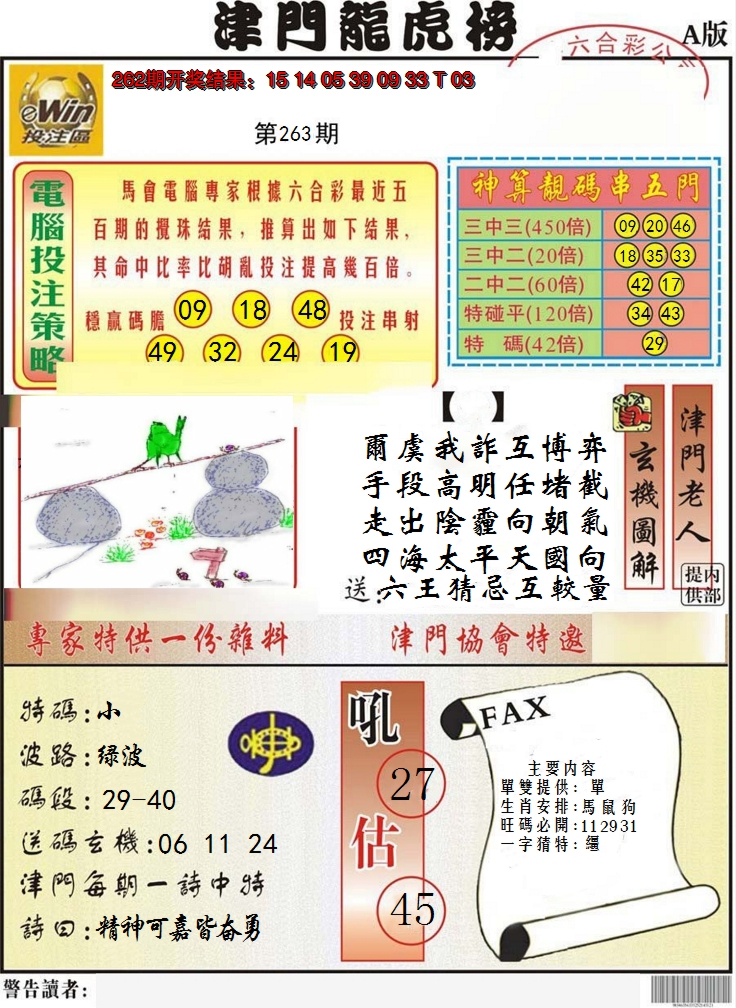 津門龍虎榜
A版
六合彩公
262期开奖结果：15 14 05 39 09 33 T 03
eWin
投注區
第263期
電腦投注策略
馬會電腦專家根據六合彩最近五
百期的攪珠结果，推算出如下结果，
其命中比率比胡亂投注提高幾百倍。
穩贏碼膽 09 18 48 投注串射
49 32 24 19
神算靚碼串五門
三中三(450倍) 09 20 46
三中二(20倍) 18 35 33
二中二(60倍) 42 17
特碰平(120倍) 34 43
特 碼(42倍) 29
【 】
爾虞我詐互博弈
手段高明任堵截
走出陰霾向朝氣
四海太平天國向
送:六王猜忌互較量
玄機圖解
津門老人
内部提供
專家特供一份雜料
津門協會特邀
特碼:小
波路:绿波
碼段:29-40
送碼玄機:06 11 24
津門每期一詩中特
詩曰:精神可嘉皆奋勇
吼 27
估 45
FAX
主要内容
單雙提供：單
生肖安排:馬鼠狗
旺碼必開:112931
一字猜特：
警告讀者: